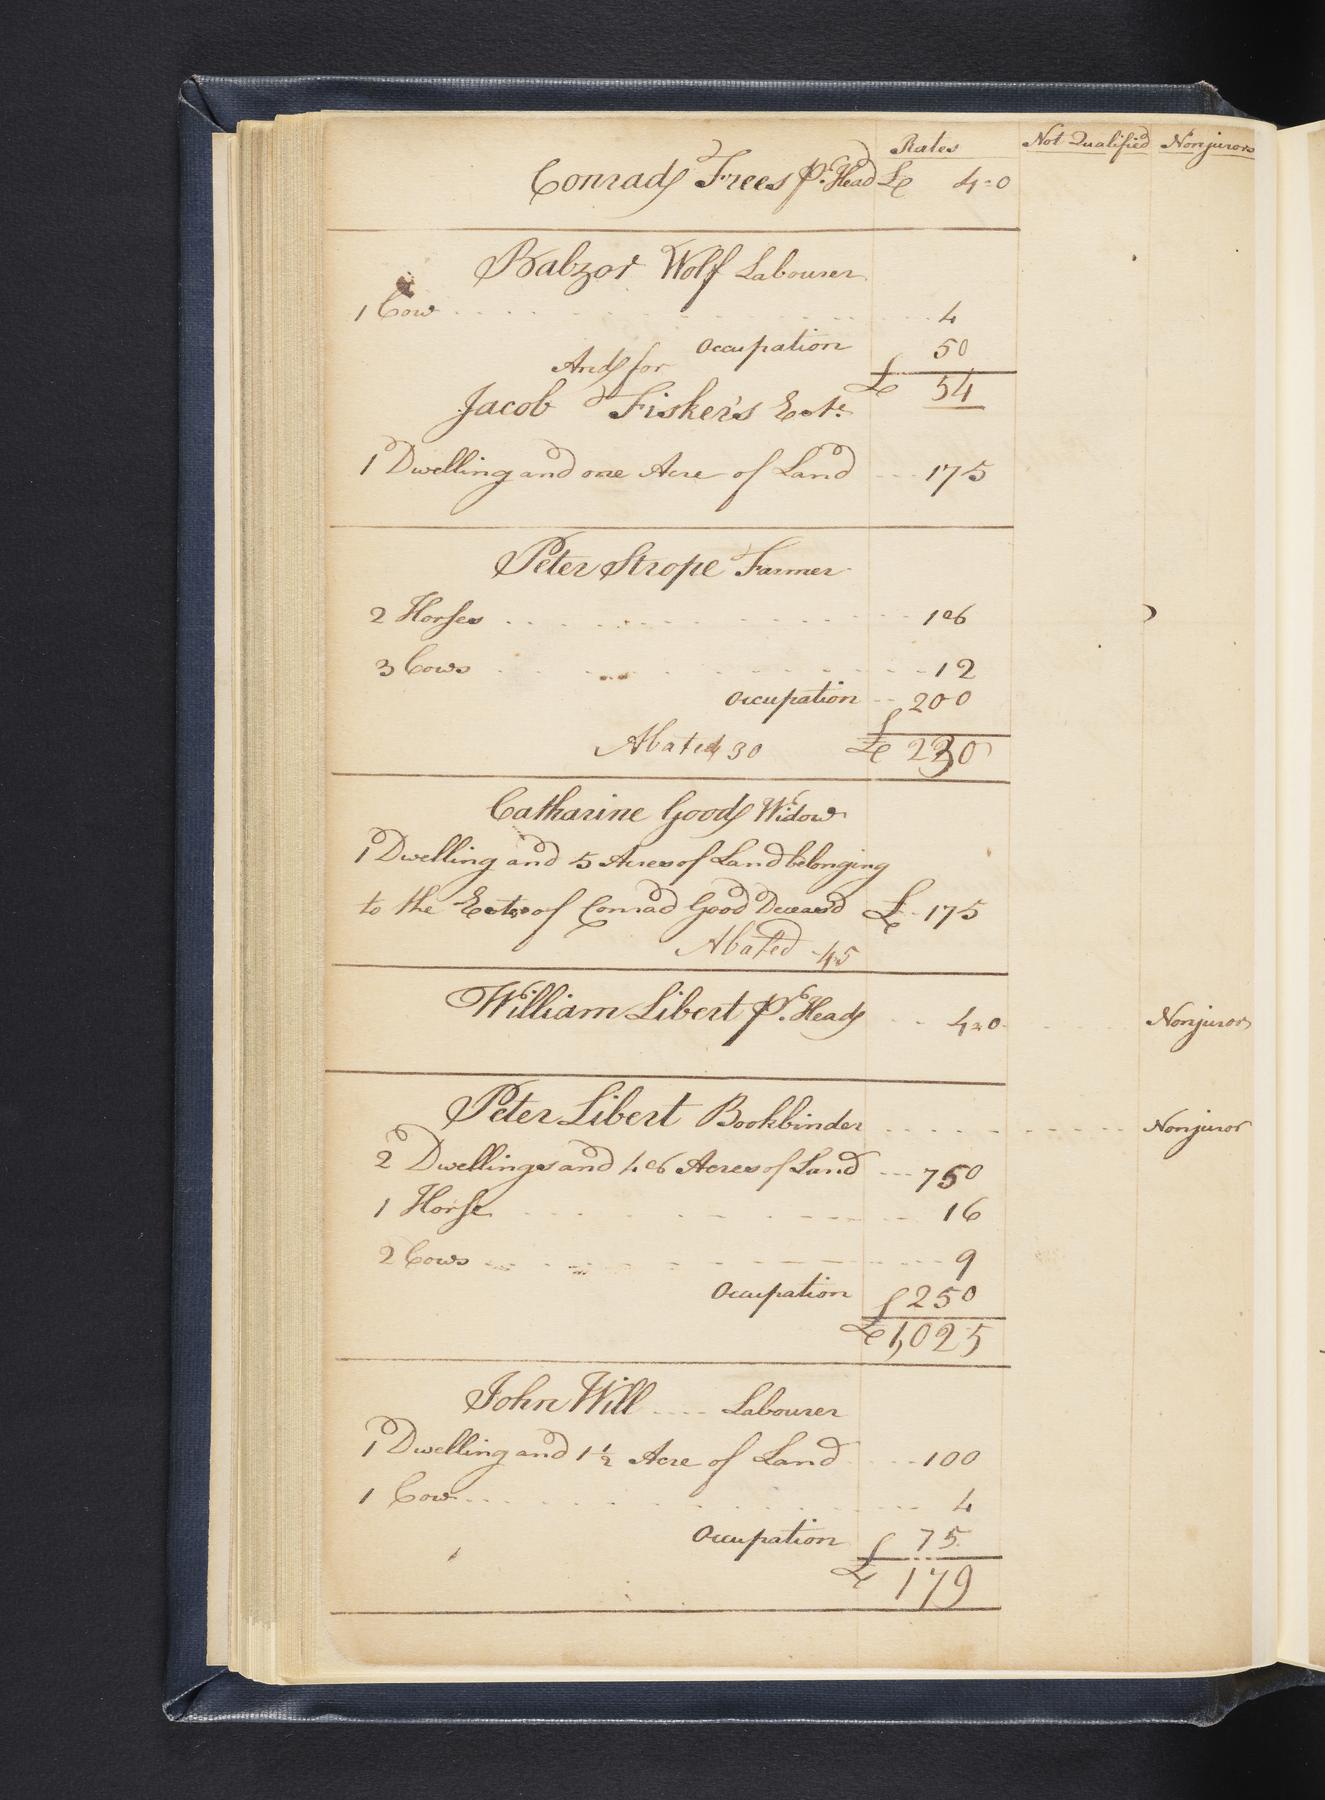 Rates Not Qualified Nonjurors
Conrad Frees Pr. Head £ 4=0
Balzor Wolf Labourer
1 Cow 4
Occupation 50
And for £ 54
Jacob Fisker's Este
1 Dwelling and one Acre of Land 175
Peter Strope Farmer
2 Horses
3 Cows 12
Occupation 200
Abated 30 £ 230
Catharine Good Widow
1 Dwelling and 5 Acres of Land belonging
to the Este of Conrad Good Deceasd £ 175
Abated 45
William Libert Pr. Head 4=0 Nonjuror
Peter Libert Bookbinder Nonjuror
2 Dwellings and Acres of Land 750
1 Horse 16
2 Cows 9
Occupation 250
£ 1,025
John Will Labourer
1 Dwelling and 1 1/2 Acre of Land 100
1 Cow 4
Occupation 75
£ 179